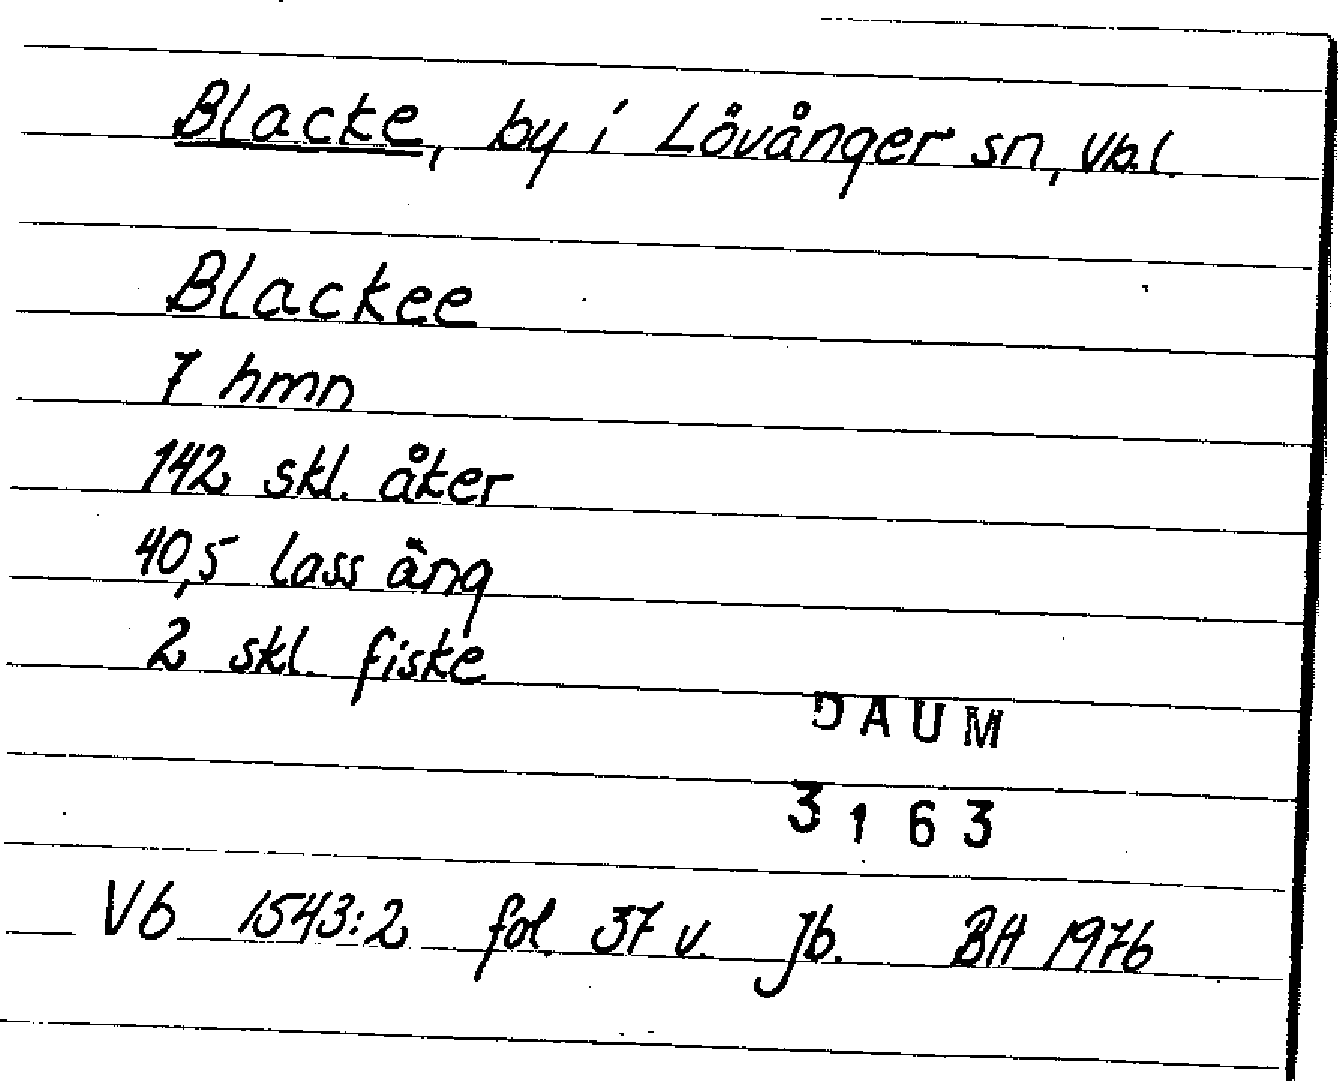 Blacke, by i Lövånger sn, Vb.l.
Blackee
7 hmn
142 skl. åker
40,5 lass äng
2 skl. fiske
DAUM
3163
Vb 1543:2 fol. 37 v. Jb. BH 1976